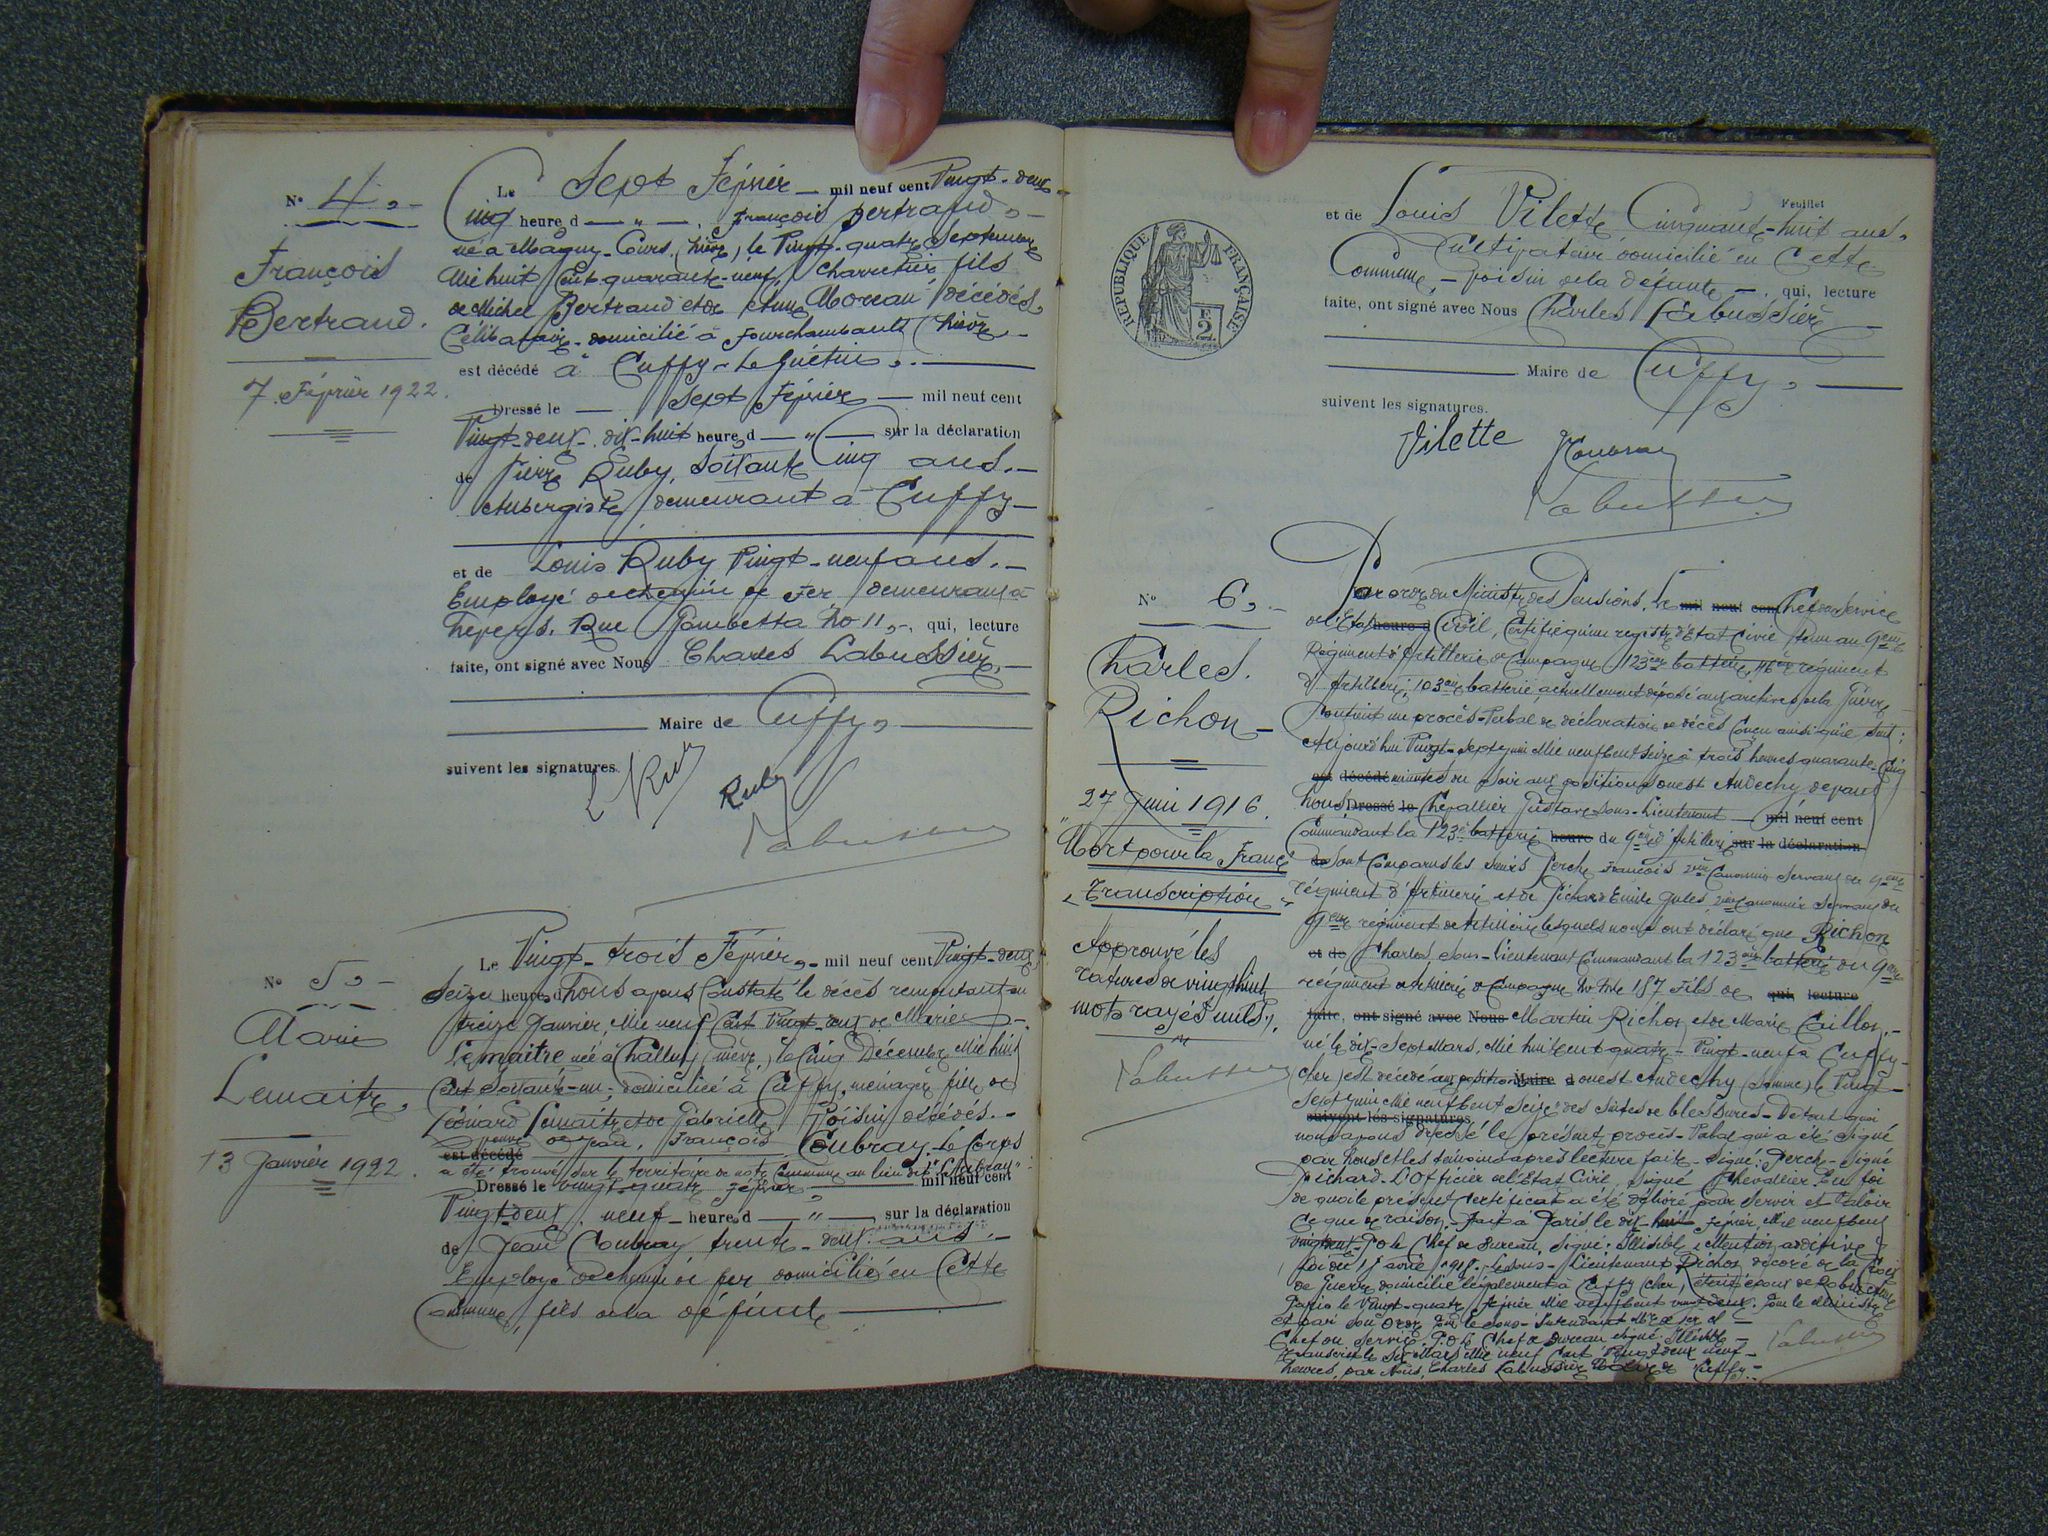 N° 4
François
Bertrand.
7 Février 1922.
Le Sept Février mil neuf cent Vingt-deux
cinq heure d — " — , François Bertrand
né à Magny-Cours (Nièvre) le Vingt-quatre Septembre
Mil huit Cent quarante-neuf, Charretier fils
de Michel Bertrand et de Anne Moreau décédés,
Célibataire, domicilié à Fourchambault (Nièvre
est décédé à Cuffy-Le Guétin
Dressé le Sept Février mil neuf cent
Vingt-deux, dix-huit heure d — " — sur la déclaration
de Pierre Ruby, soixante Cinq ans.
Aubergiste demeurant à Cuffy
et de Louis Ruby Vingt-neuf ans.
Employé de chemin de Fer demeurant à
Nevers. Rue Gambetta No 11, qui, lecture
faite, ont signé avec Nous Charles Labussière
Maire de Cuffy
suivent les signatures.
L Ruby
Ruby
Labussière
N° 5
Marie
Lemaitre
13 Janvier 1922.
Le Vingt-trois Février mil neuf cent Vingt-deux,
Seize heure d Nous avons Constaté le décès remontant au
treize Janvier, Mil neuf Cent Vingt-deux de Marie
Lemaitre née à Challuy (Nièvre) le Cinq Décembre Mil huit
Cent Soixante-un; domiciliée à Cuffy, ménagère fille de
Léonard Lemaitre et de Gabrielle Voisin décédés.
veuve de Jean, François Coubray. Le Corps
est décédé
a été trouvé sur le territoire de notre Commune au lieu dit
Dressé le vingt-quatre Février mil neuf cent
Vingt-deux, neuf heure d — " — sur la déclaration
de Jean Coubray trente-deux ans.
Employé de chemin de fer domicilié en Cette
Commune, fils de la défunte
Feuillet
RÉPUBLIQUE FRANÇAISE
2 F
et de Louis Vilette Cinquante-huit ans.
Cultivateur domicilié en Cette
Commune, voisin de la défunte qui, lecture
faite, ont signé avec Nous Charles Labussière
Maire de Cuffy
suivent les signatures.
Vilette Coubray
Labussière
N° 6
Charles.
Richon
27 Juin 1916.
"Mort pour la France
"Transcription"
Approuvé les
ratures de vingt huit
mots rayés nuls.
Labussière
Par ordre du Ministre des Pensions, Le mil neuf cent Chef du Service
de l'Etat heure d Civil, Certifie qu'un registre d'Etat Civil tenu au 9eme
Régiment d'Artillerie de Campagne 123eme batterie, 116eme régiment
d'Artillerie, 103eme batterie, actuellement déposé aux archives de la Guerre
Contient un procès-Verbal de déclaration de décès Conçu ainsi qu'il suit:
Aujourd'hui Vingt-Sept juin Mil neuf Cent Seize à trois heures quarante-Cinq
est décédé minutes du soir aux positions ouest Andechy devant
Nous Dressé le Chevallier Gustave Sous-Lieutenant mil neuf cent
Commandant la 123e batterie heure du 9eme d'Artillerie sur la déclaration
de Sont Comparus les sieurs Perche François 2eme Canonnier Servant du 9eme
régiment d'Artillerie et de Pichard Emile Jules, 2eme Canonnier Servant du
9eme régiment de Artillerie lesquels nous ont déclaré que Richon
et de Charles Sous-Lieutenant Commandant la 123eme batterie du 9eme
régiment Artillerie de Campagne No Mle 157 Fils de qui, lecture
faite, ont signé avec Nous Martin Richon et de Marie Caillon,
né le dix-Sept Mars, Mil huit cent quatre-Vingt-neuf à Cuffy
(Cher) est décédé aux positions Maire d ouest Andechy (Somme) le Vingt-
Sept juin Mil neuf Cent Seize "des suites de blessures. De tout quoi
suivent les signatures.
nous avons dressé le présent procès-Verbal qui a été signé
par Nous et les témoins après lecture faite. Signé: Perche. Signé
Pichard. L'Officier de l'Etat Civil, Signé Chevallier. En foi
de quoi le présent Certificat a été délivré pour servir et Valoir
Ce que de raison. Fait à Paris le dix huit Février, Mil neuf Cent
P.O le Chef de Bureau, Signé: Illisible, Mention additive
le Sous-Lieutenant Richon décoré de la Croix
de Guerre domicilié légalement à Cuffy (Cher)
Paris le Vingt-quatre Février Mil neuf Cent vingt deux. Pour le Ministre
et par son ordre Pour le Sous-Intendant
Chef du Service, P.O le Chef de Bureau signé: Illisible
Transcrit le Six Mars Mil neuf Cent Vingt deux neuf
heures, par Nous, Charles Labussière Maire de Cuffy.
Labussière